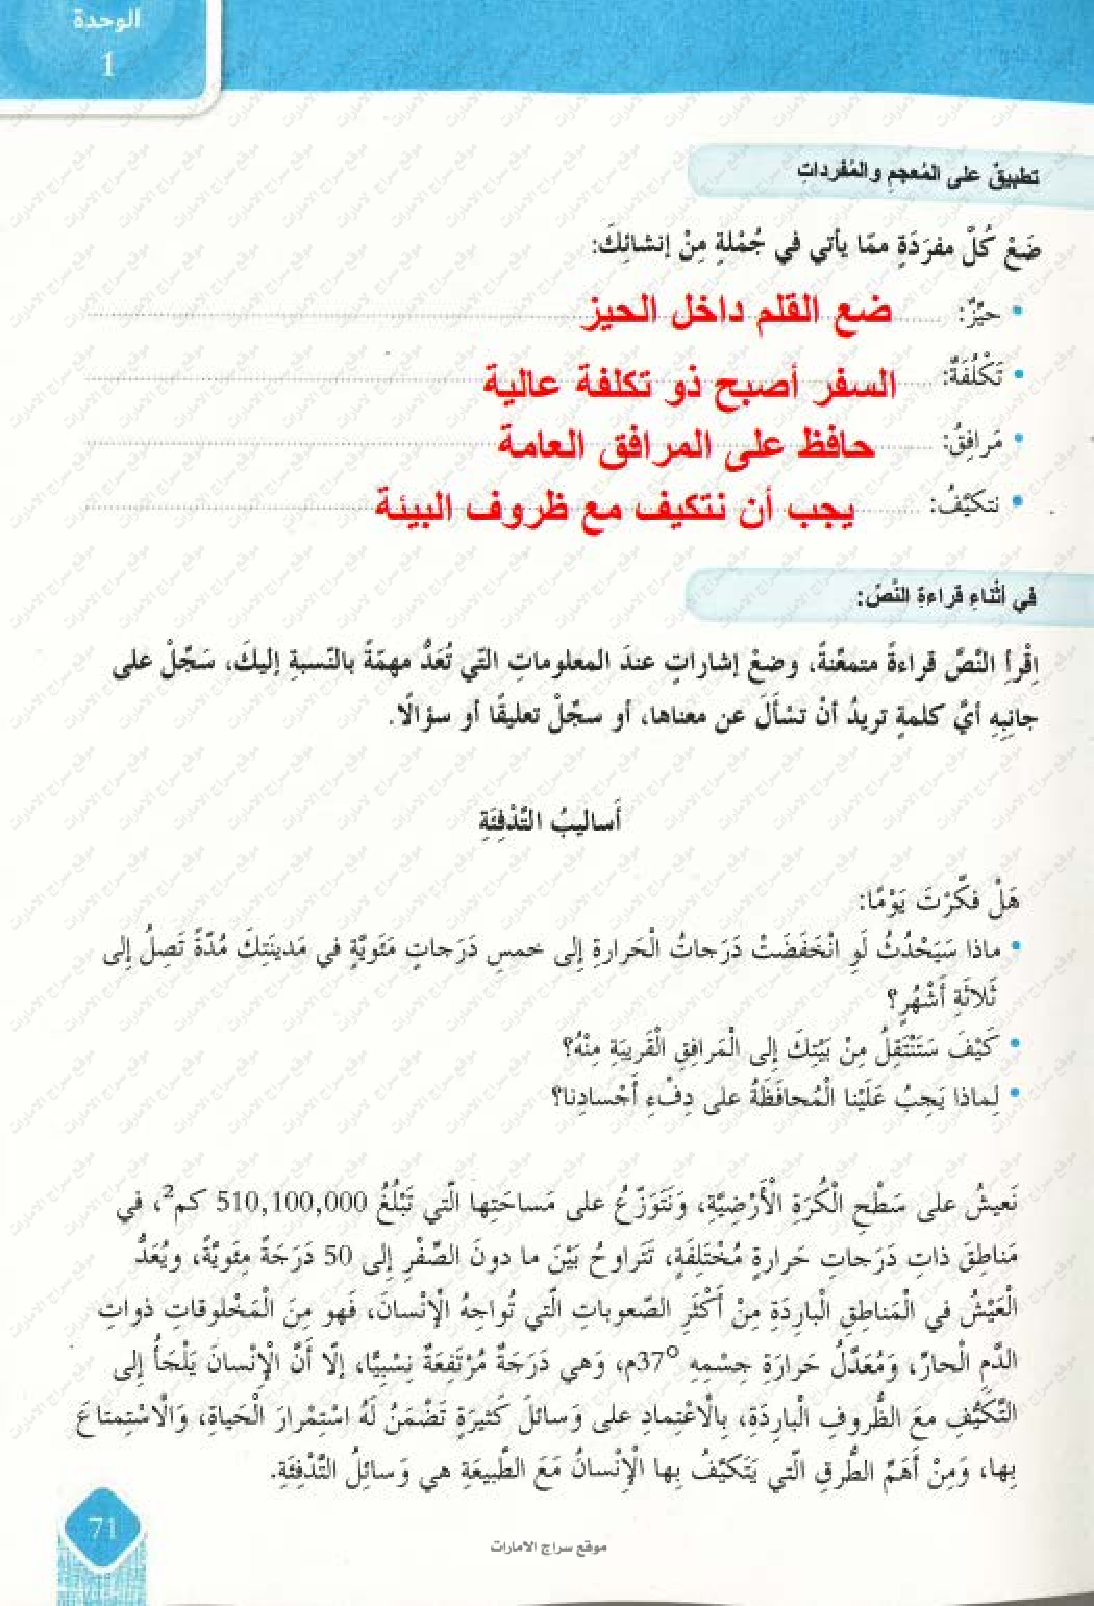 الوحدة
1
تطبيقٌ على المُعجمِ والمُفرداتِ
ضَعْ كُلَّ مفرَدَةٍ ممّا يأتي في جُمْلةٍ مِنْ إنشائِكَ:
• حيِّزٌ: ضع القلم داخل الحيز
• تَكْلُفَةٌ: السفر أصبح ذو تكلفة عالية
• مَرافِقٌ: حافظ على المرافق العامة
• نتكيّفُ: يجب أن نتكيف مع ظروف البيئة
في أثْناءِ قراءةِ النَّصِّ:
اِقْرأِ النَّصَّ قراءةً متمعِّنةً، وضعْ إشاراتٍ عندَ المعلوماتِ التّي تُعَدُّ مهمّةً بالنّسبةِ إليكَ، سَجِّلْ على
جانِبِهِ أيَّ كلمةٍ تريدُ أنْ تسْأَلَ عن معناها، أو سجِّلْ تعليقًا أو سؤالًا.
أَساليبُ التَّدْفِئَةِ
هَلْ فكّرْتَ يَوْمًا:
• ماذا سَيَحْدُثُ لَوِ انْخَفَضَتْ دَرَجاتُ الْحَرارةِ إلى خمسِ دَرَجاتٍ مَئَويَّةٍ في مَدينَتِكَ مُدّةً تَصِلُ إلى
ثَلاثَةِ أَشْهُرٍ؟
• كَيْفَ سَتَنْتَقِلُ مِنْ بَيْتِكَ إلى الْمَرافِقِ الْقَريبَةِ مِنْهُ؟
• لِماذا يَجِبُ عَلَيْنا الْمُحافَظَةُ على دِفْءِ أَجْسادِنا؟
نَعيشُ على سَطْحِ الْكُرَةِ الْأَرْضِيَّةِ، وَنَتَوَزّعُ على مَساحَتِها الّتي تَبْلُغُ 510,100,000 كم²، في
مَناطِقَ ذاتِ دَرَجاتِ حَرارةٍ مُخْتَلِفَةٍ، تَتَراوحُ بَيْنَ ما دونَ الصِّفْرِ إلى 50 دَرَجَةً مِئَويَّةً، ويُعَدُّ
الْعَيْشُ في الْمَناطِقِ الْبارِدَةِ مِنْ أَكْثَرِ الصّعوباتِ الّتي تُواجِهُ الْإنْسانَ، فَهو مِنَ الْمَخْلوقاتِ ذواتِ
الدَّمِ الْحارِّ، وَمُعَدَّلُ حَرارَةِ جِسْمِهِ 37°م، وَهي دَرَجَةٌ مُرْتَفِعَةٌ نِسْبِيًّا، إلّا أَنَّ الْإِنْسانَ يَلْجَأُ إلى
التَّكَيُّفِ معَ الظُّروفِ الْبارِدَةِ، بِالْاعْتِمادِ على وَسائلَ كَثيرَةٍ تَضْمَنُ لَهُ اسْتِمْرارَ الْحَياةِ، وَالْاسْتِمتاعَ
بِها، وَمِنْ أَهَمِّ الطُّرقِ الّتي يَتَكَيَّفُ بِها الْإنْسانُ مَعَ الطَّبيعَةِ هي وَسائِلُ التَّدْفِئَةِ.
71
موقع سراج الامارات